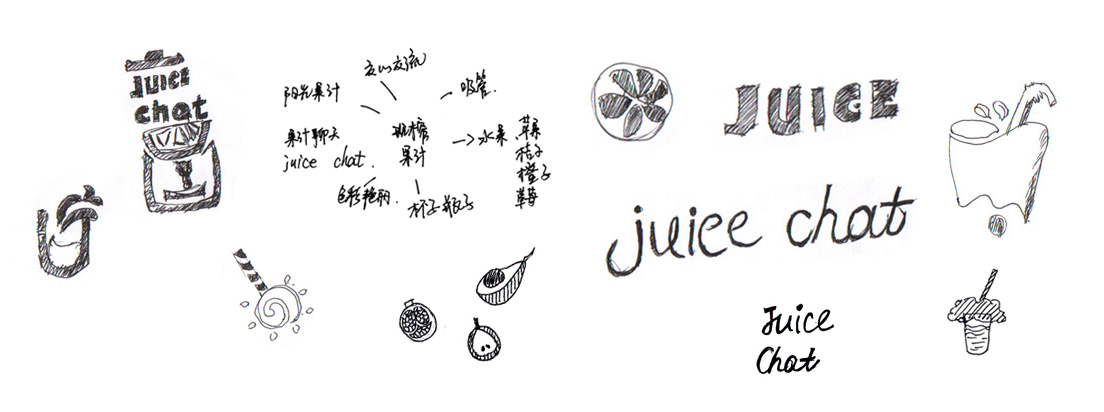 juice
chat
交心交流
阳光果汁
吸管.
果汁聊天
juice chat.
果汁
水果
苹果
桔子
橙子
草莓
色彩艳丽.
杯子瓶子
JUICE
juice chat
Juice
Chat